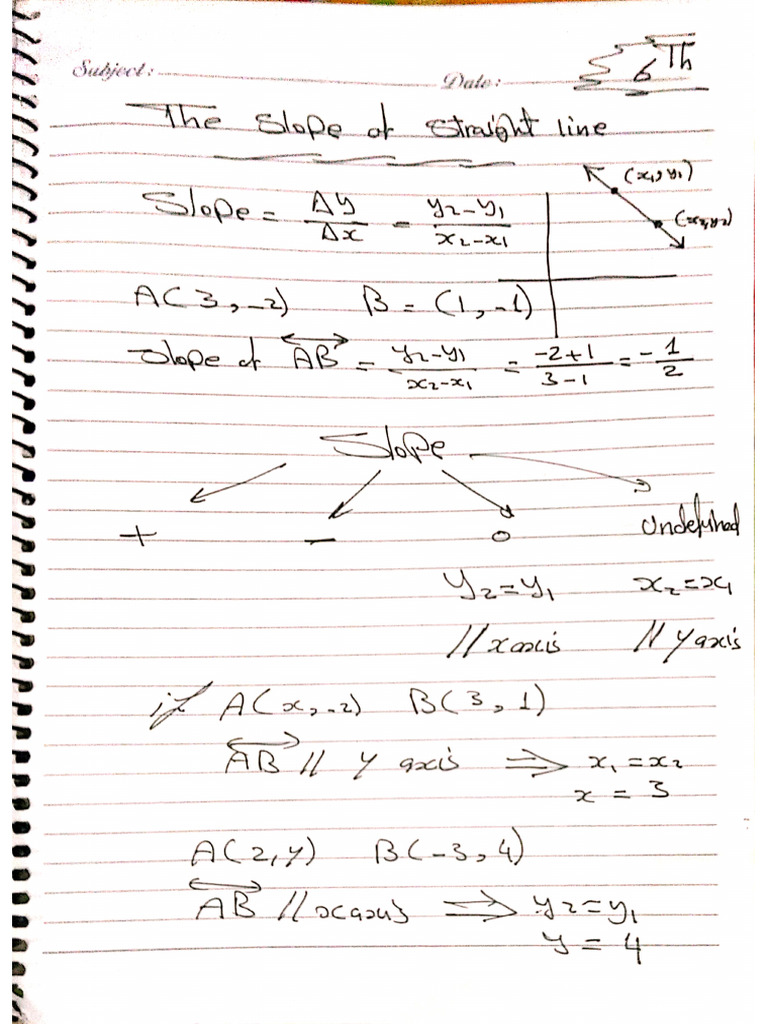 Subject: Date: 6Th
The Slope of straight line
Slope = Δy/Δx = (y₂-y₁)/(x₂-x₁)
(x₁, y₁)
(x₂, y₂)
A(3, -2) B = (1, -1)
Slope of AB = (y₂-y₁)/(x₂-x₁) = (-2+1)/(3-1) = -1/2
Slope
+ - 0 undefined
y₂=y₁ x₂=x₁
// x axis // y axis
if A(x, -2) B(3, 1)
AB // y axis ⇒ x₁ = x₂
x = 3
A(2, y) B(-3, 4)
AB // x axis ⇒ y₂=y₁
y = 4